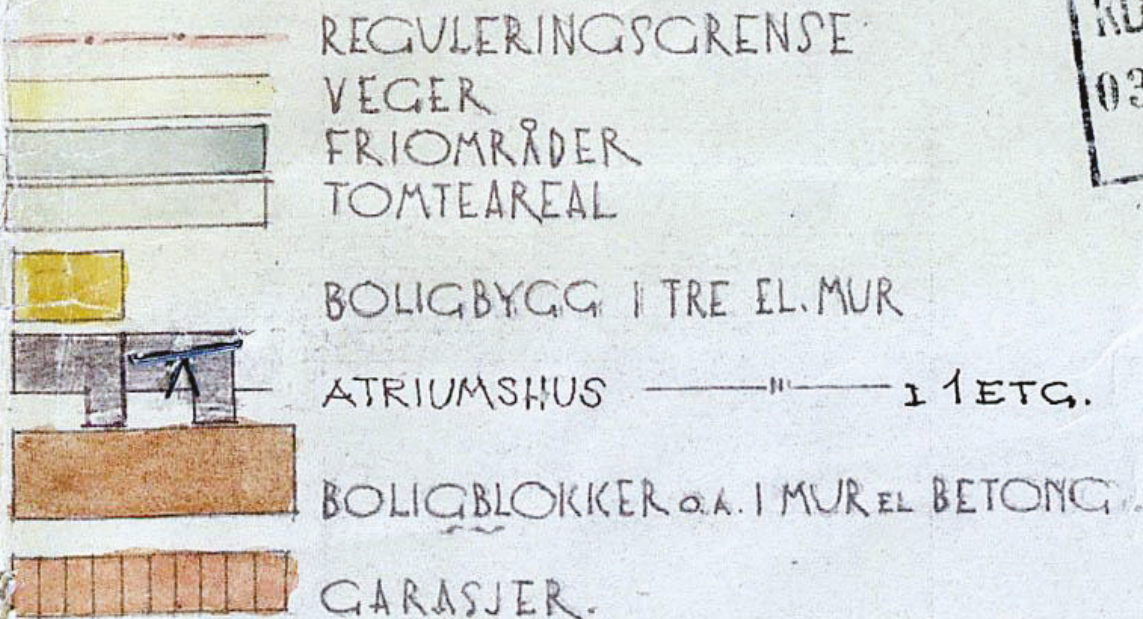 REGULERINGSGRENSE
VEGER
FRIOMRÅDER
TOMTEAREAL
BOLIGBYGG I TRE EL. MUR
ATRIUMSHUS —— " —— I 1 ETG.
BOLIGBLOKKER O.A. I MUR EL BETONG
GARASJER.
03